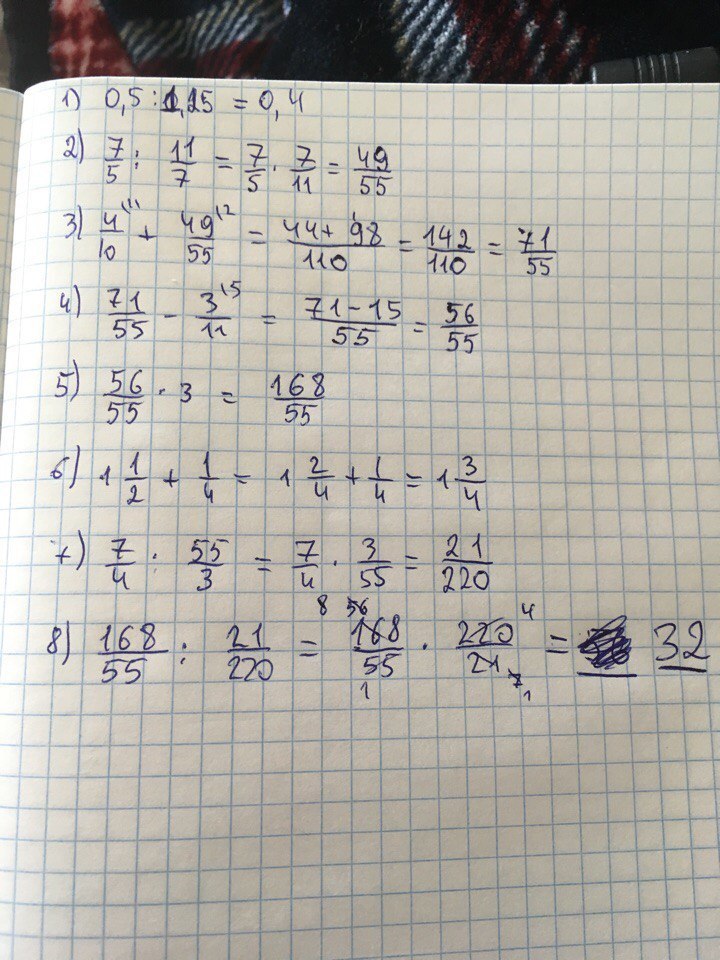 1) 0,5 : 1,25 = 0,4
2) 7/5 : 11/7 = 7/5 · 7/11 = 49/55
3) 4/10 ^(11 + 49/55 ^(2 = (44 + 98)/110 = 142/110 = 71/55
4) 71/55 - 3/11 ^(5 = (71 - 15)/55 = 56/55
5) 56/55 · 3 = 168/55
6) 1 1/2 + 1/4 = 1 2/4 + 1/4 = 1 3/4
7) 7/4 : 55/3 = 7/4 · 3/55 = 21/220
8) 168/55 : 21/220 = 8 56 168/55 1 · 220 4/21 7 1 = 32